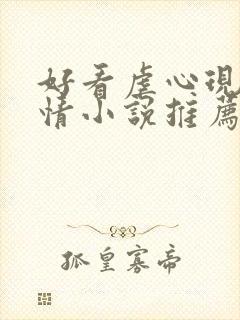 好看虐心現
情小說推薦
孤皇寡帝